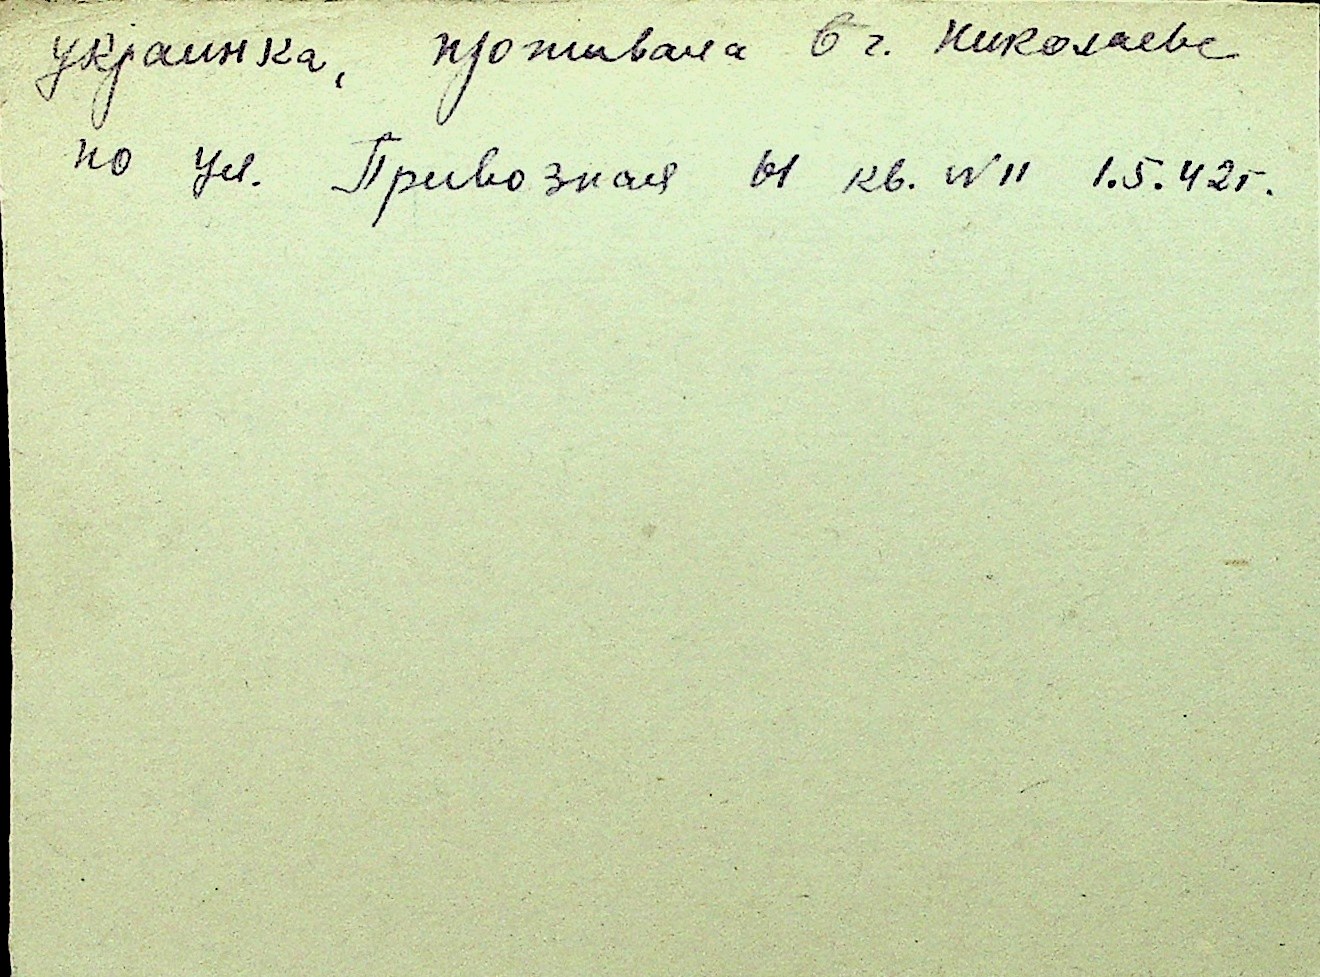 украинка, проживала в г. Николаеве
по ул. Привозная 61 кв. №11 1.5.42г.